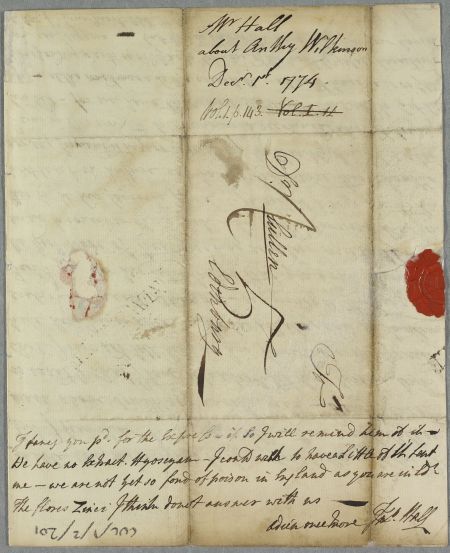 Mr Hall
about Anthy Wilkinson
Decr. 1st. 1774
Vol. I. p. 143. Vol. I. 11
Dr Cullen
Edinburg
I fancy you pd. for the Express – if so I will remind them of it –
We have no Extract Hyoscyam – I could wish to have a little of it sent
me – we are not yet so fond of poison in England as you are in
The flores Zinci I think do not answer with us –
adieu once more Hall
CUL/1/2/201